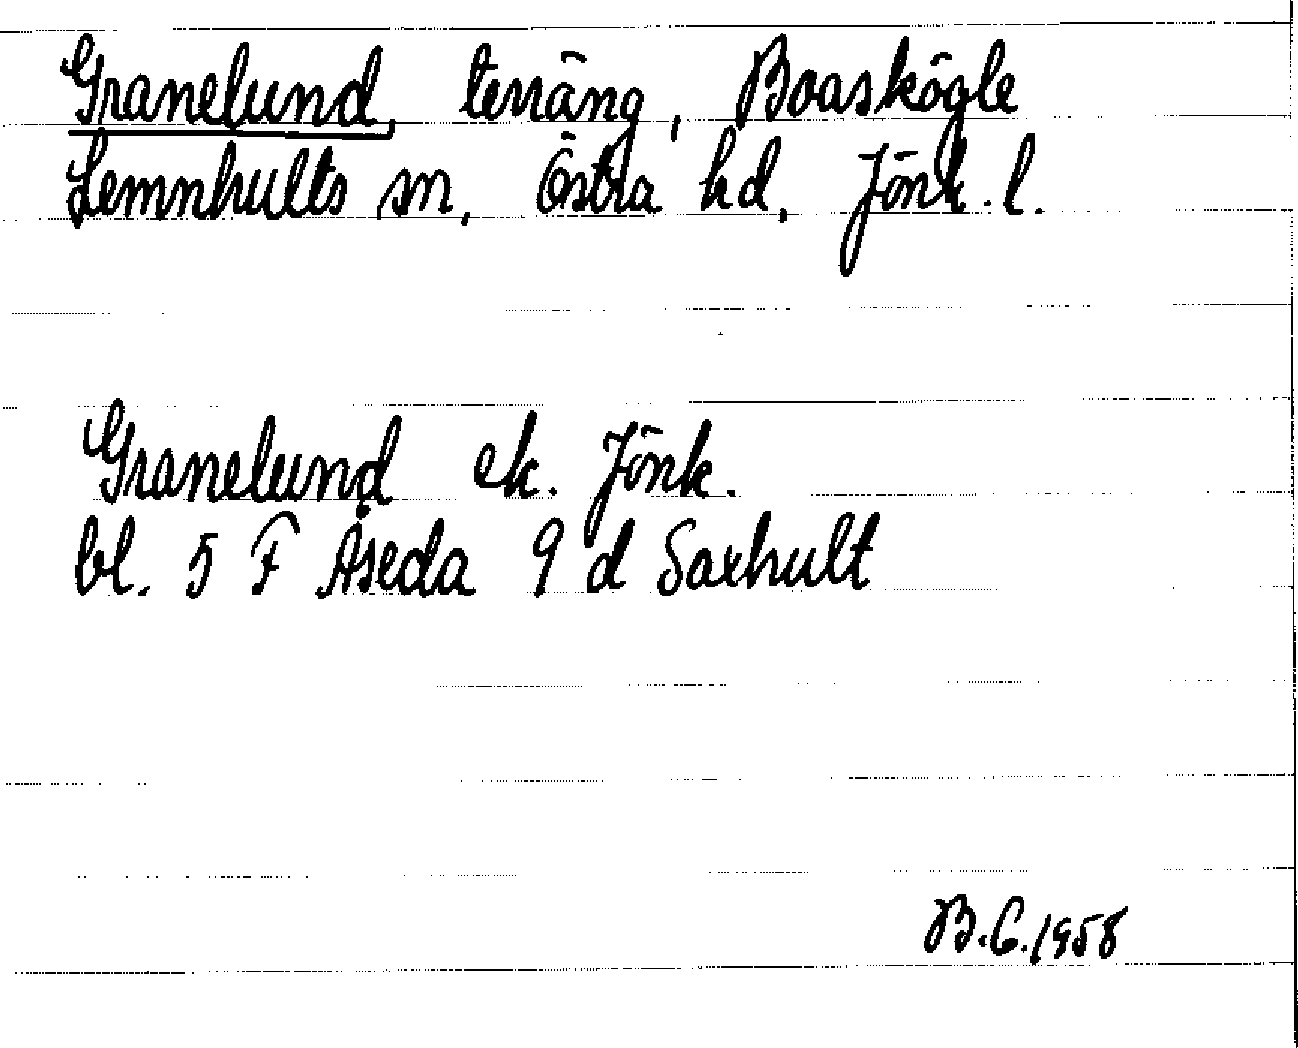 Granelund, terräng, Boaskögle
Lemnhults sn, Östra hd, Jönk. l.
Granelund ek. Jönk.
bl. 5 F Åseda 9 d Saxhult
B.C. 1958